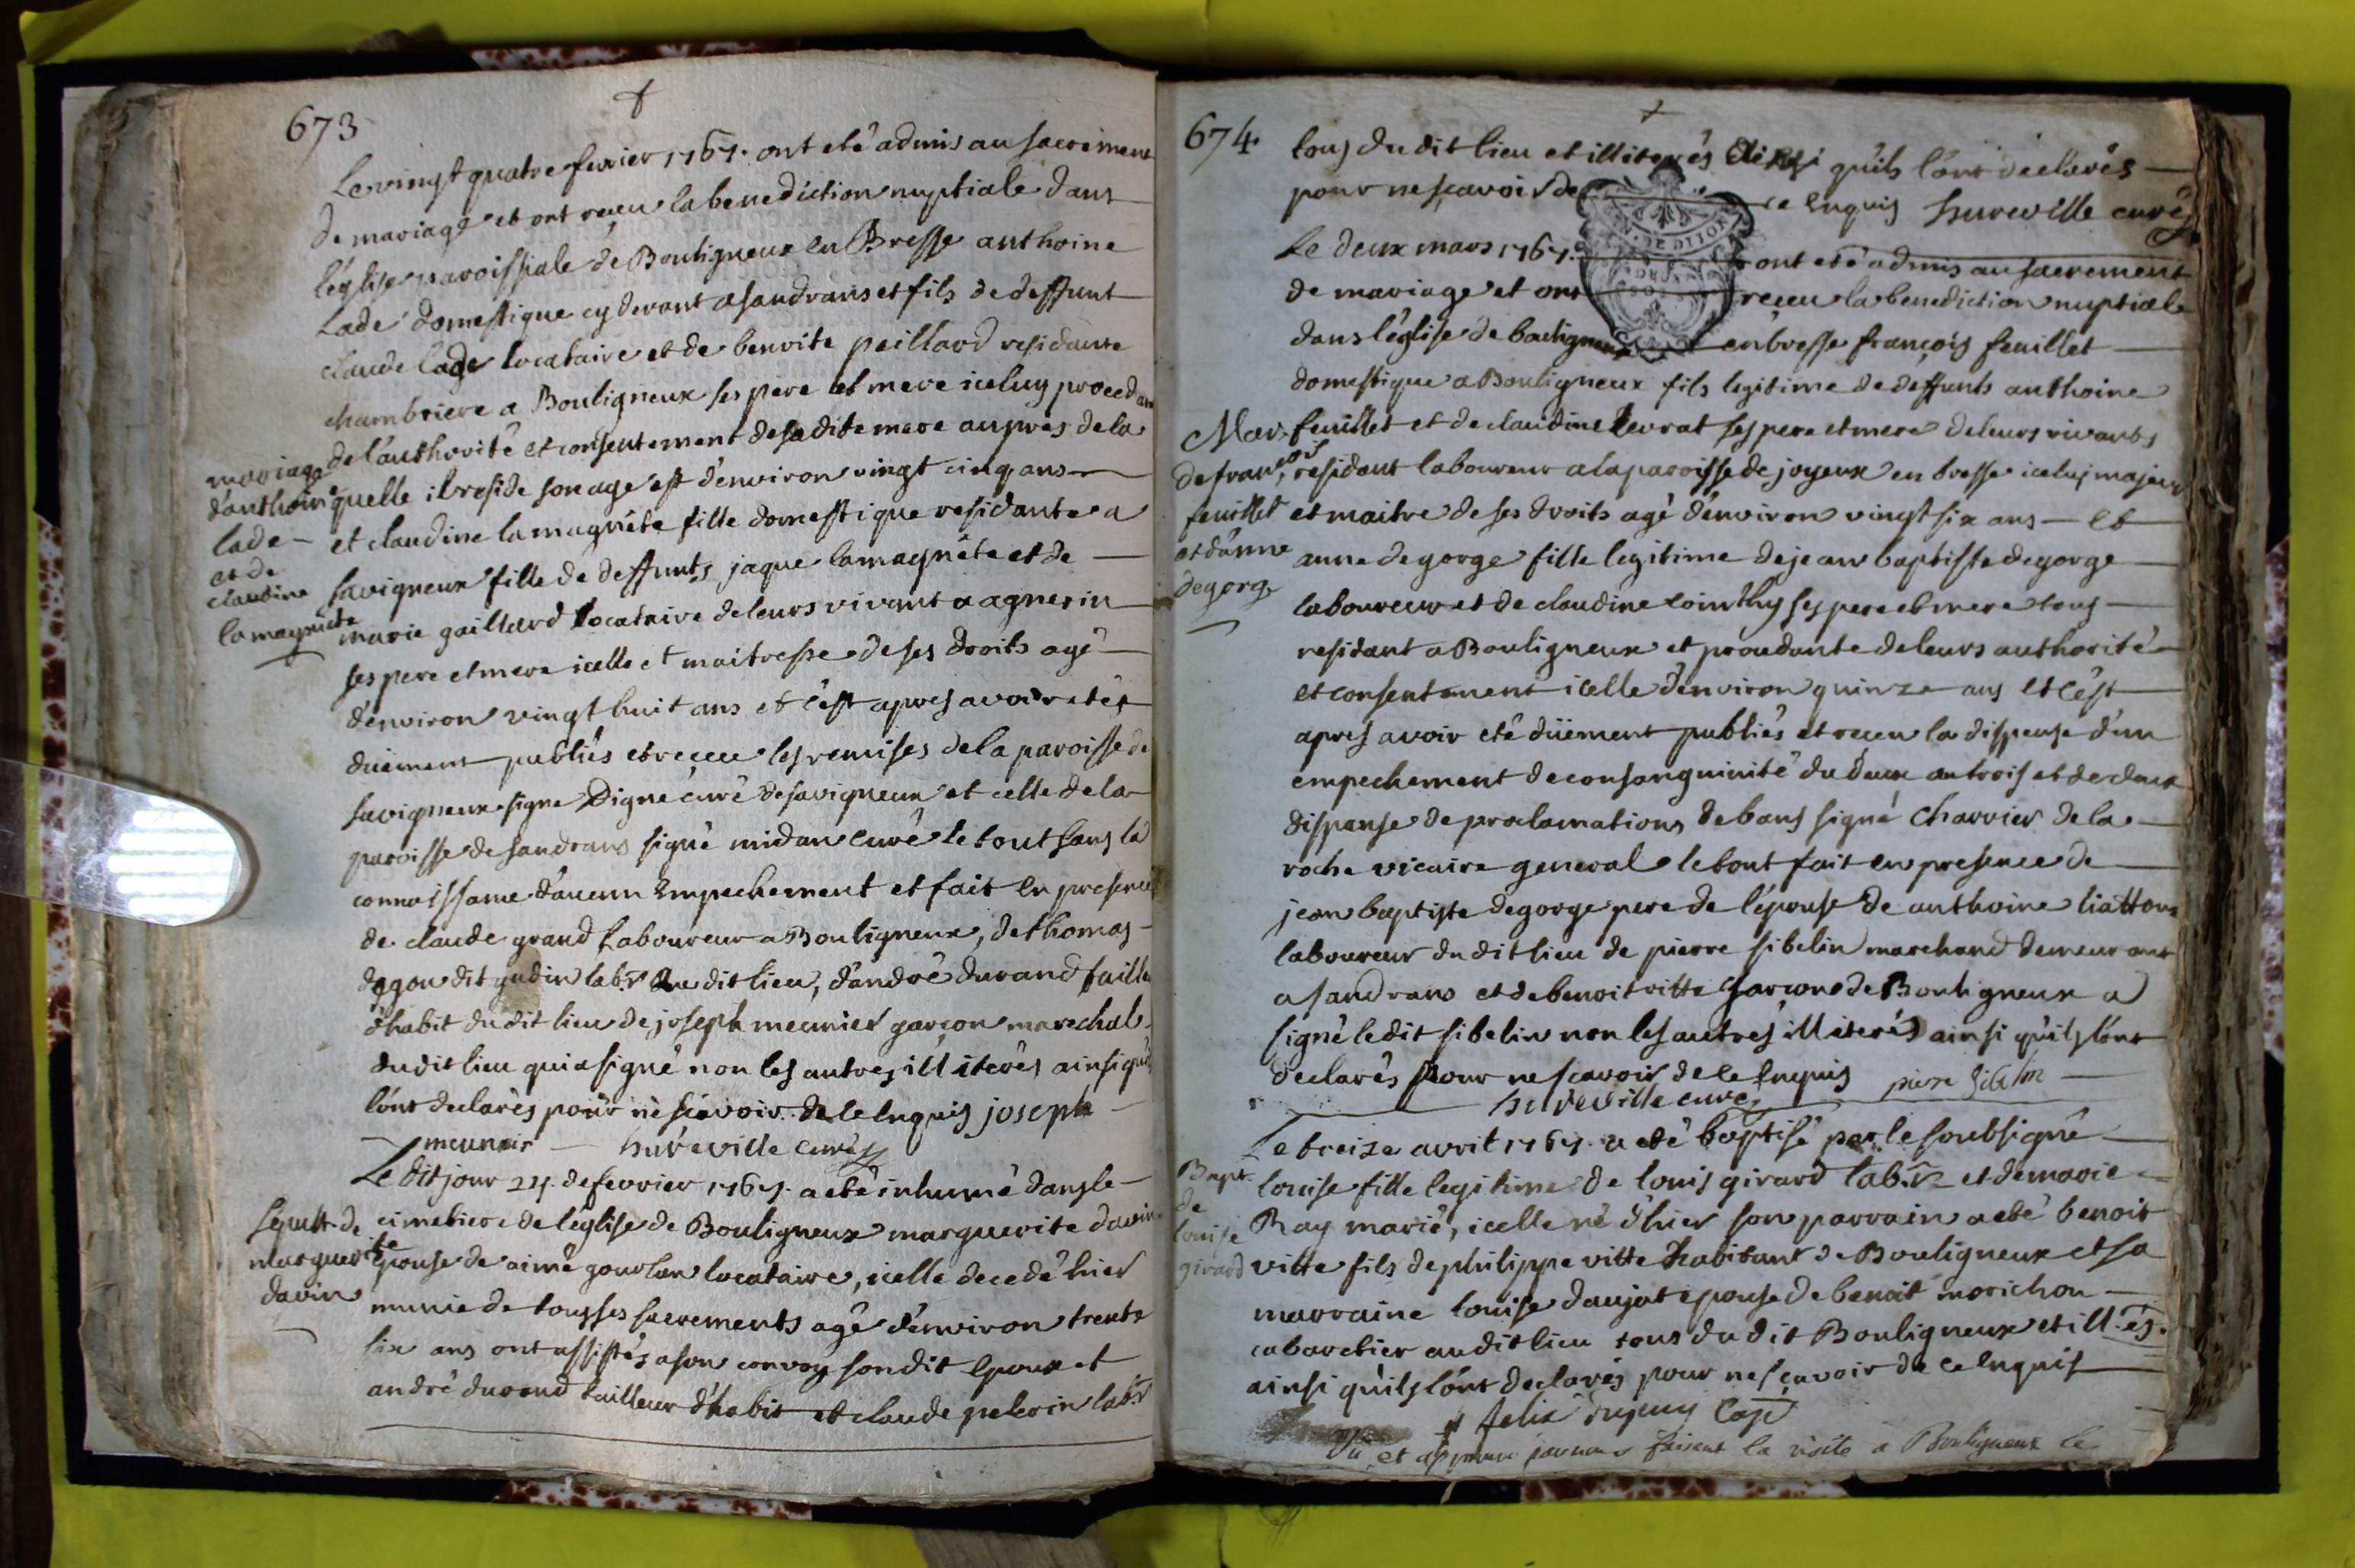 673
Le vingt quatre fevrier 1767. ont eté admis au sacrement
de mariage et ont reçeu la benediction nuptiale dans
l'église paroissiale de Bouligneux en Bresse anthoine
Lade domestique cy devant a sandrans et fils de deffunt
claude lade locataire et de benoite paillard residante
chambriere a Bouligneux ses pere et mere iceluy procedant
de l'authorité et consentement de sa dite mere aupres de la
quelle il reside son age est d'environ vingt cinq ans
et claudine lamagnéte fille domestique residante a
savigneux fille de deffunts jaque lamagnéte et de
marie gaillard locataire de leurs vivant a agnerin
ses pere et mere icelle et maitresse de ses droits agé
d'environ vingt huit ans et c'est apres avoir etés
düement publiés et reçeu les remises de la paroisse de
savigneux signé Digne curé de savigneux et celle de la
paroisse de sandrans signé midan curé le tout sans la
connoissame d'aucun empechement et fait en presence
de claude grand Laboureur a Bouligneux, de thomas
dagon dit gudin lab.r du dit lieu, d'andré durand taille
d'habit du dit lieu de joseph meunier garçon marechal
du dit lieu qui a signé non les autres illiterés ainsi qu'ils
l'ont declarés pour ne sçavoir de ce enquis joseph
meunier hureville curé
mariage
d'anthoine
lade
et de
claudine
lamagnéte
Le dit jour 24. de fevrier 1767. a eté inhumé dans le
cimetiere de l'église de Bouligneux marguerite davin
epouse de aimé gourlan locataire, icelle decedé hier
munie de tous ses sacrements agé d'environ trente
six ans ont assistés a son convoy son dit epoux et
andré durand tailleur d'habit et claude pelerin lab.r
sepult. de
marguerite
davin
674.
tous du dit lieu et illiterés ainsi qu'ils l'ont declarés
pour ne sçavoir de ce enquis hureville curé
DE DIJON
Le deux mars 1767. ont eté admis au sacrement
de mariage et ont reçeu la benediction nuptiale
dans l'église de bouligneux en bresse françois feuillet
domestique a Bouligneux fils legitime de deffunts anthoine
feuillet et de claudine levrat ses pere et mere de leurs vivants
residant laboureur a la paroisse de joyeux en bresse iceluy majeur
et maitre de ses droits agé d'environ vingt six ans et
anne degorge fille legitime de jean baptiste degorge
laboureur et de claudine cointhy ses pere et mere tous
residant a Bouligneux et procedante de leurs authorité
et consentement icelle d'environ quinze ans et c'est
apres avoir eté düement publiés et reçeu la dispense d'un
empechement de consanguinité du deux au trois et de deux
dispanse de proclamations de bans signé Charrier de la
roche vicaire general le tout fait en presence de
jean baptiste degorge pere de l'épouse de anthoine liattous
laboureur du dit lieu de pierre sibelin marchand demeurant
a sandrans et de benoit vitte garçons de Bouligneux a
signé le dit sibelin non les autres illiterés ainsi qu'ils l'ont
declarés pour ne sçavoir de ce enquis pierre sibelin
hureville curé
Mar.
de françois
feuillet
et d'anne
degorg
Le treize avril 1767. a eté baptisé par le soubsigné
louise fille legitime de louis girard lab.r et de marie
Ray marié, icelle né d'hier son parrain a eté benoit
vitte fils de philippe vitte habitant de Bouligneux et sa
marraine louise daujat epouse de benoit morichon
cabaretier au dit lieu tous du dit Bouligneux et ill.és.
ainsi qu'ils l'ont declarés pour ne sçavoir de ce enquis
felix dupuy Cap
Bapt.
de
louise
girard
Vu et approuvé par nous faisant la visite a Bouligneux le